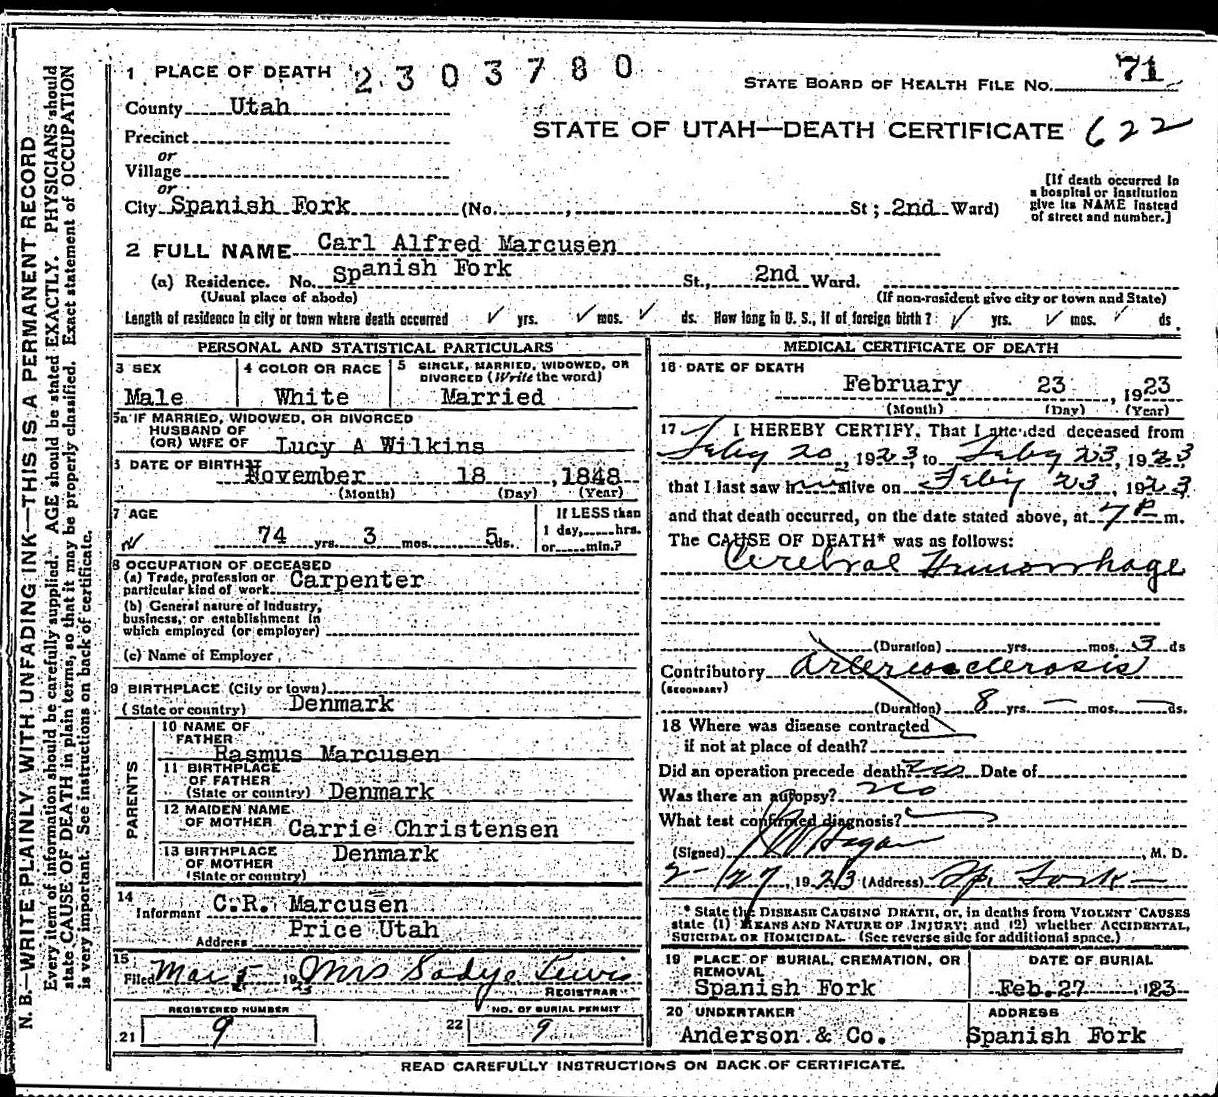 1 PLACE OF DEATH 2303780
STATE BOARD OF HEALTH FILE NO. 71
County Utah
STATE OF UTAH—DEATH CERTIFICATE 622
Precinct
or
Village
or
City Spanish Fork (No. , St; 2nd Ward)
[If death occurred in a hospital or institution give its NAME instead of street and number.]
2 FULL NAME Carl Alfred Marcusen
(a) Residence. No. Spanish Fork St., 2nd Ward.
(Usual place of abode) (If non-resident give city or town and State)
Length of residence in city or town where death occurred ✓ yrs. ✓ mos. ✓ ds. How long in U. S., if of foreign birth? ✓ yrs. ✓ mos. ✓ ds.
PERSONAL AND STATISTICAL PARTICULARS
3 SEX
Male
4 COLOR OR RACE
White
5 SINGLE, MARRIED, WIDOWED, OR DIVORCED (Write the word)
Married
5a IF MARRIED, WIDOWED, OR DIVORCED
HUSBAND OF
(OR) WIFE OF Lucy A Wilkins
6 DATE OF BIRTH November 18, 1848
(Month) (Day) (Year)
7 AGE
74 yrs. 3 mos. 5 ds.
If LESS than
1 day, hrs.
or min.?
8 OCCUPATION OF DECEASED
(a) Trade, profession or
particular kind of work Carpenter
(b) General nature of Industry,
business, or establishment in
which employed (or employer)
(c) Name of Employer
9 BIRTHPLACE (City or town)
(State or country) Denmark
PARENTS
10 NAME OF
FATHER Rasmus Marcusen
11 BIRTHPLACE
OF FATHER
(State or country) Denmark
12 MAIDEN NAME
OF MOTHER Carrie Christensen
13 BIRTHPLACE
OF MOTHER Denmark
(State or country)
14
Informant C.R. Marcusen
Address Price Utah
15
Filed Mar 1 1923 Mrs Sadye Lewis
REGISTRAR
REGISTERED NUMBER
21 9
NO. OF BURIAL PERMIT
22 9
MEDICAL CERTIFICATE OF DEATH
16 DATE OF DEATH
February 23, 1923
(Month) (Day) (Year)
17 I HEREBY CERTIFY, That I attended deceased from
Feby 20, 1923, to Feby 23, 1923
that I last saw him alive on Feby 23, 1923
and that death occurred, on the date stated above, at 7 P m.
The CAUSE OF DEATH* was as follows:
Cerebral Hemorrhage
(Duration) yrs. mos. 3 ds
Contributory arteriosclerosis
(SECONDARY)
(Duration) 8 yrs. — mos. — ds.
18 Where was disease contracted
if not at place of death?
Did an operation precede death? no Date of
Was there an autopsy? no
What test confirmed diagnosis?
(Signed) Hagan, M. D.
2/27, 1923 (Address) Sp. Fork
* State the DISEASE CAUSING DEATH, or, in deaths from VIOLENT CAUSES
state (1) MEANS AND NATURE OF INJURY; and (2) whether ACCIDENTAL,
SUICIDAL OR HOMICIDAL. (See reverse side for additional space.)
19 PLACE OF BURIAL, CREMATION, OR
REMOVAL
Spanish Fork
DATE OF BURIAL
Feb. 27 1923
20 UNDERTAKER
Anderson & Co.
ADDRESS
Spanish Fork
READ CAREFULLY INSTRUCTIONS ON BACK OF CERTIFICATE.
N. B.—WRITE PLAINLY WITH UNFADING INK—THIS IS A PERMANENT RECORD
Every item of information should be carefully supplied. AGE should be stated EXACTLY. PHYSICIANS should
state CAUSE OF DEATH in plain terms, so that it may be properly classified. Exact statement of OCCUPATION
is very important. See instructions on back of certificate.